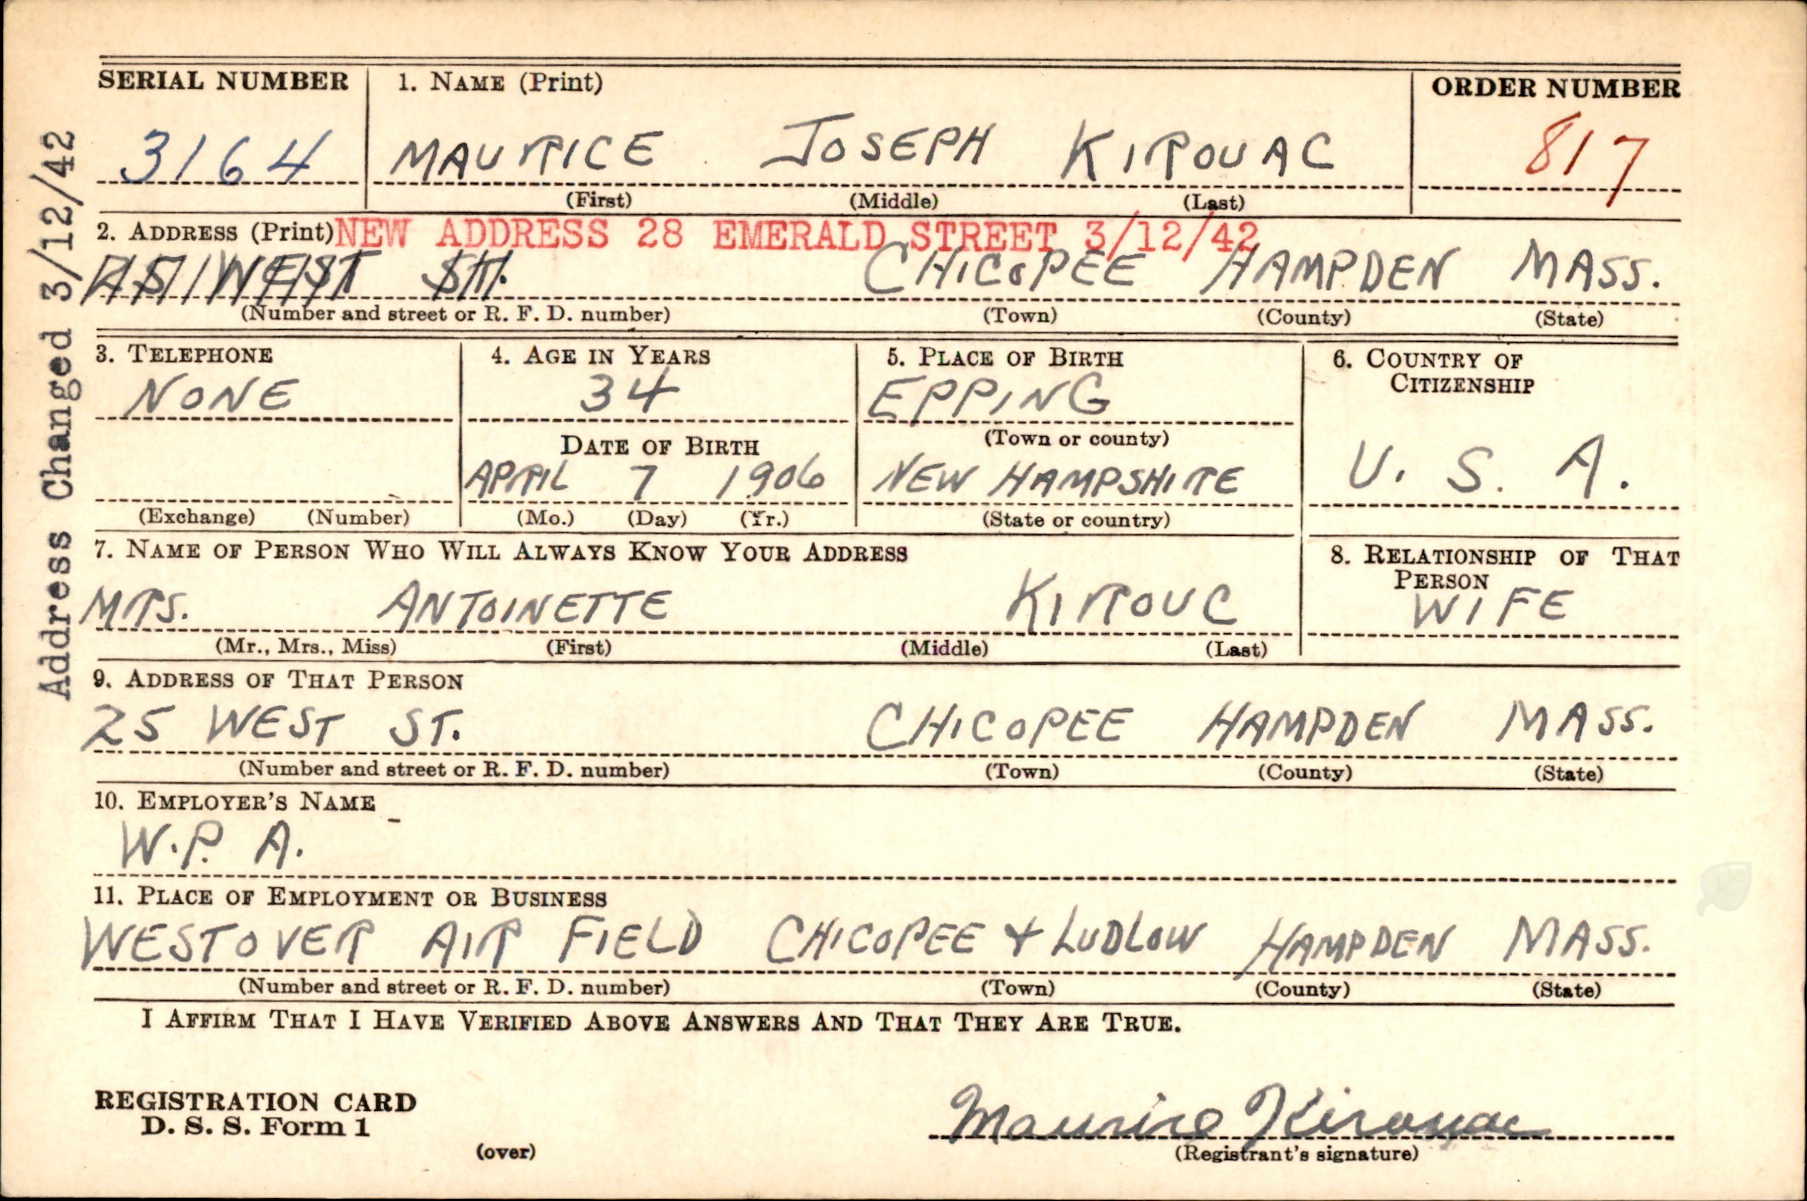 SERIAL NUMBER 1. NAME (Print) ORDER NUMBER
3164 MAURICE JOSEPH KIROUAC 817
(First) (Middle) (Last)
2. ADDRESS (Print) NEW ADDRESS 28 EMERALD STREET 3/12/42
25 WEST ST. CHICOPEE HAMPDEN MASS.
(Number and street or R. F. D. number) (Town) (County) (State)
3. TELEPHONE 4. AGE IN YEARS 5. PLACE OF BIRTH 6. COUNTRY OF
CITIZENSHIP
NONE 34 EPPING
(Town or county)
DATE OF BIRTH
APRIL 7 1906 NEW HAMPSHIRE U. S. A.
(Exchange) (Number) (Mo.) (Day) (Yr.) (State or country)
7. NAME OF PERSON WHO WILL ALWAYS KNOW YOUR ADDRESS 8. RELATIONSHIP OF THAT
PERSON
MRS. ANTOINETTE KIROUC WIFE
(Mr., Mrs., Miss) (First) (Middle) (Last)
9. ADDRESS OF THAT PERSON
25 WEST ST. CHICOPEE HAMPDEN MASS.
(Number and street or R. F. D. number) (Town) (County) (State)
10. EMPLOYER'S NAME
W.P. A.
11. PLACE OF EMPLOYMENT OR BUSINESS
WESTOVER AIR FIELD CHICOPEE + LUDLOW HAMPDEN MASS.
(Number and street or R. F. D. number) (Town) (County) (State)
I AFFIRM THAT I HAVE VERIFIED ABOVE ANSWERS AND THAT THEY ARE TRUE.
REGISTRATION CARD
D. S. S. Form 1
(over)
Maurice Kirouac
(Registrant's signature)
Address Changed 3/12/42